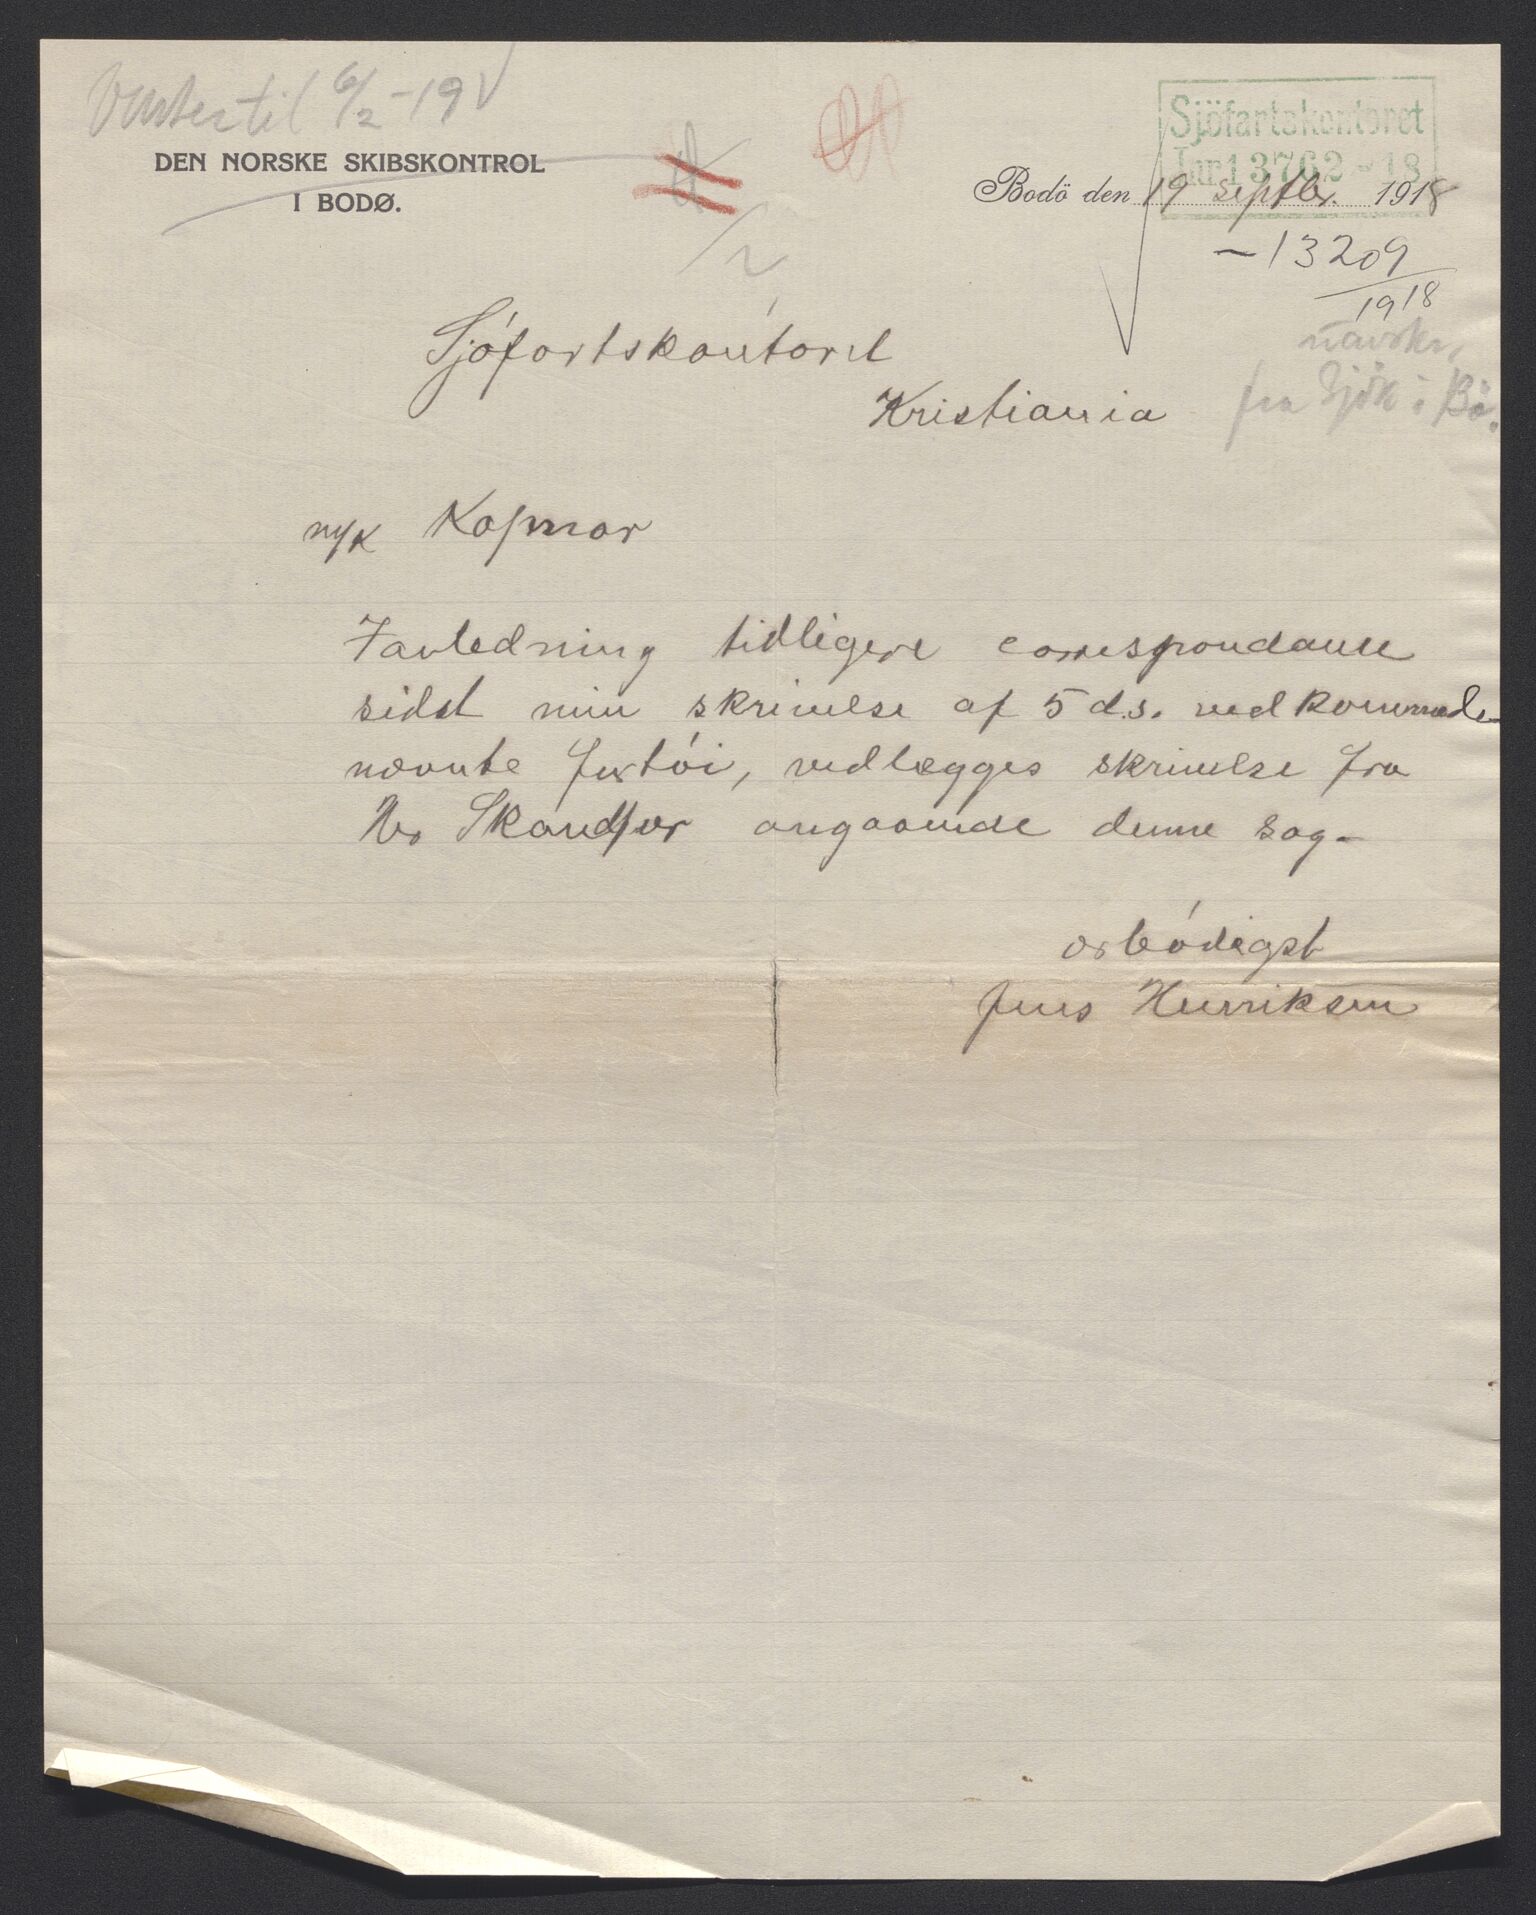 Venter til 6/2-19
DEN NORSKE SKIBSKONTROL
I BODØ.
Sjöfartskontoret
Jnr13762-18
Bodö den 19 septbr. 1918
-13209
1918
Sjøfartskontoret
Kristiania
m/k Kopmar
I anledning tidligere correspondance
sidst min skrivelse af 5 d.s. vedkommende
nævnte fartøi, vedlægges skrivelse fra
Hr Skandfer angaaende denne sag-
ærbødigst
Jens Henriksen
fra Sjök i Bö.